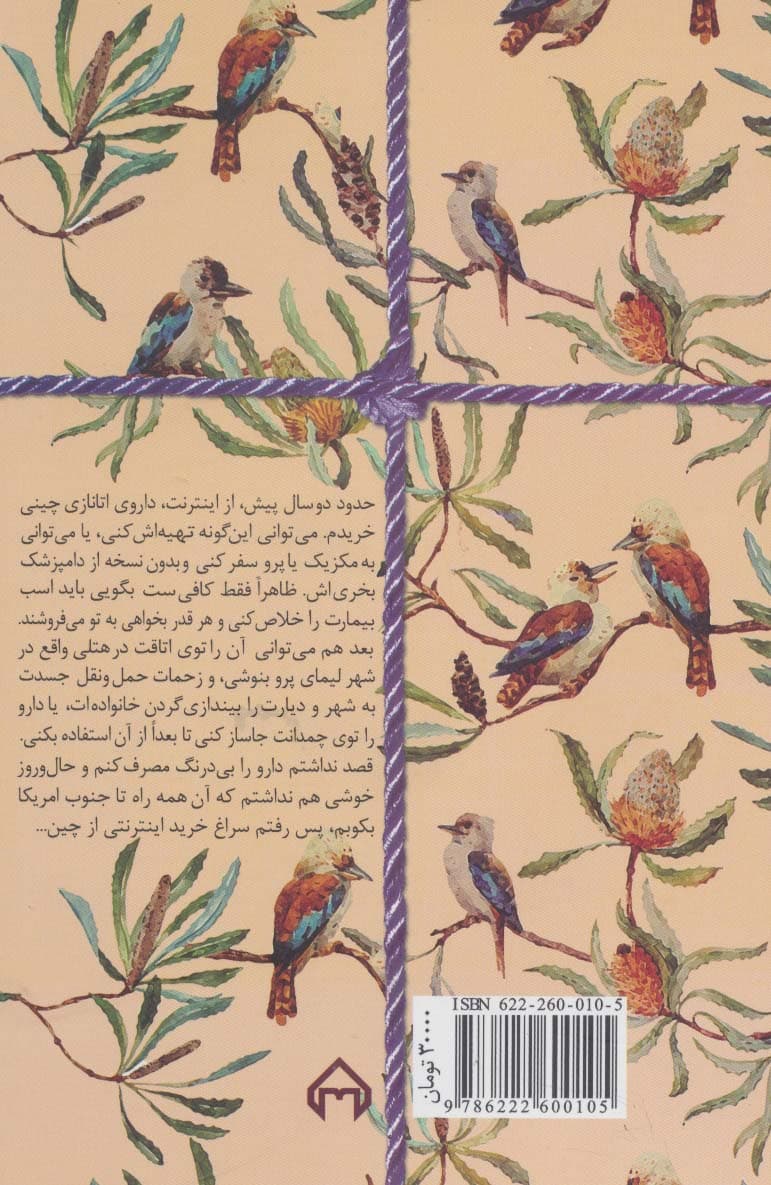 حدود دو سال پیش، از اینترنت، داروی اتانازی چینی
خریدم. می‌توانی این‌گونه تهیه‌اش کنی، یا می‌توانی
به مکزیک یا پرو سفر کنی و بدون نسخه از دامپزشک
بخری‌اش. ظاهراً فقط کافی‌ست بگویی باید اسب
بیمارت را خلاص کنی و هر قدر بخواهی به تو می‌فروشند.
بعد هم می‌توانی آن را توی اتاقت در هتلی واقع در
شهر لیمای پرو بنوشی، و زحمات حمل‌ونقل جسدت
به شهر و دیارت را بیندازی گردن خانواده‌ات، یا دارو
را توی چمدانت جاساز کنی تا بعداً از آن استفاده بکنی.
قصد نداشتم دارو را بی‌درنگ مصرف کنم و حال‌وروز
خوشی هم نداشتم که آن همه راه تا جنوب امریکا
بکوبم، پس رفتم سراغ خرید اینترنتی از چین...
ISBN 622-260-010-5
۳۰۰۰۰ تومان
9 786222 600105